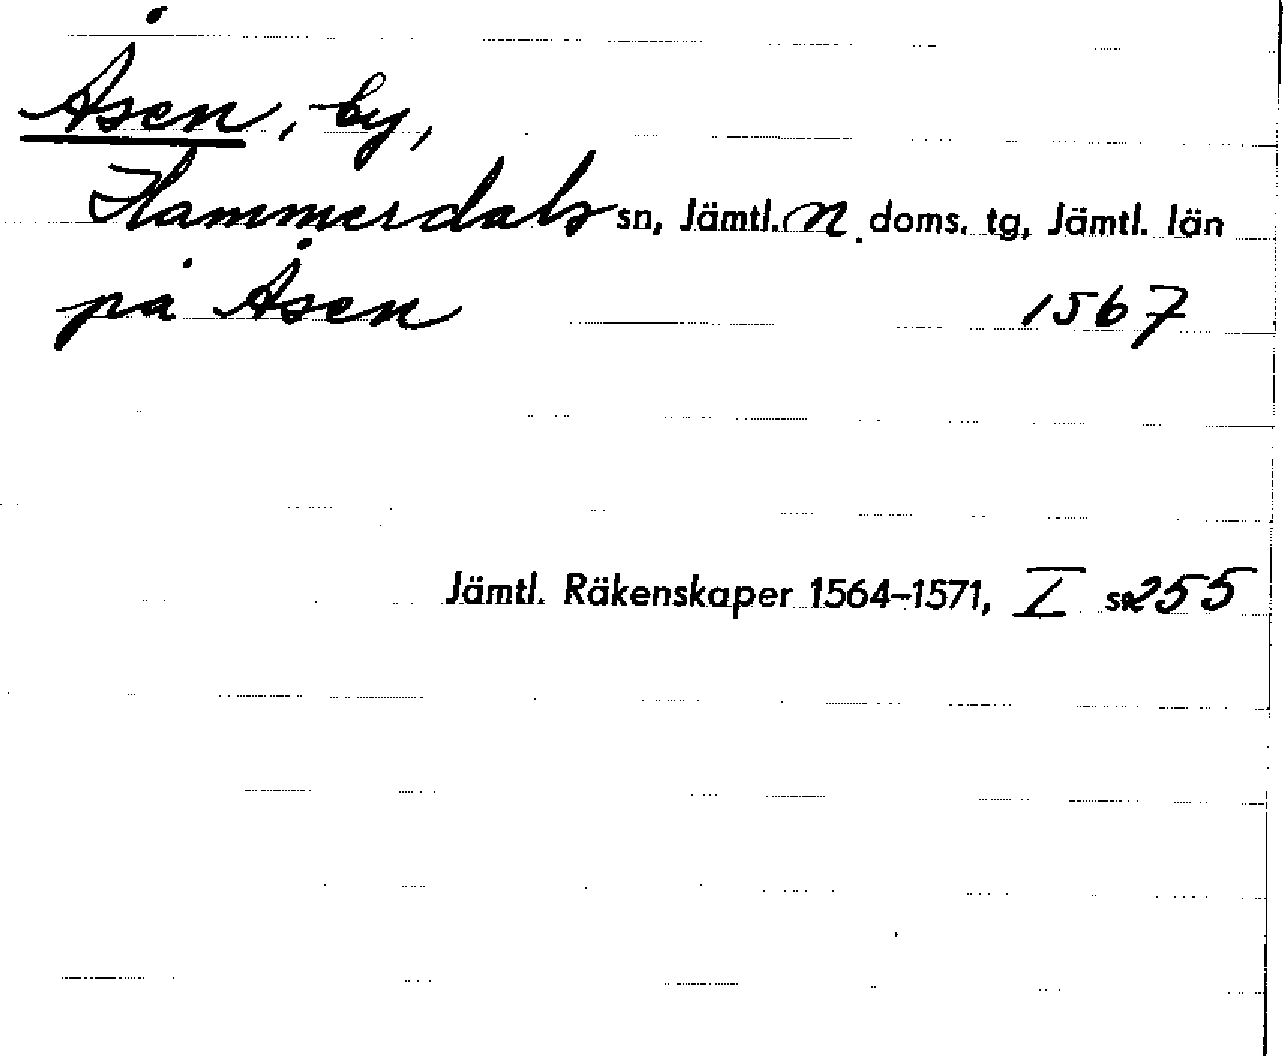 Åsen, by,
Hammerdals sn, Jämtl. n. doms. tg, Jämtl. län
på Åsen 1567
Jämtl. Räkenskaper 1564–1571, I s. 255